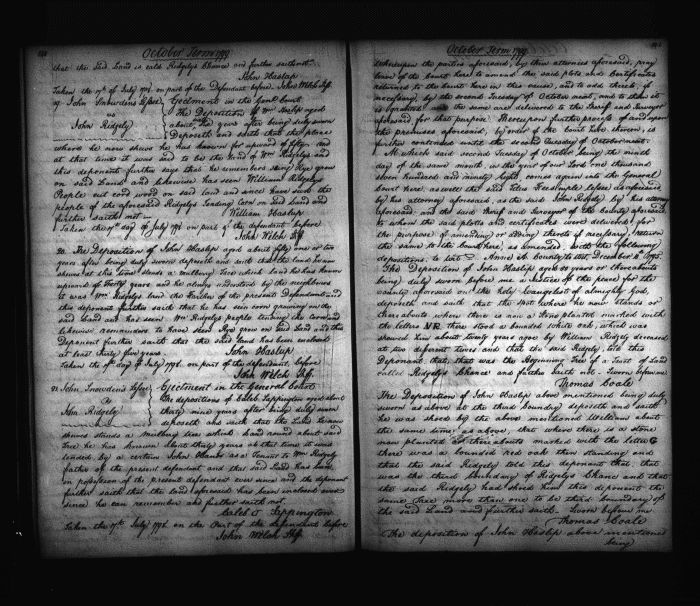 October Term 1799
that the said Land is calld Ridgelys Chance and further saith not
John Haslup
Taken the 17th of July 1798 on part of the Defendant before John Welch
19 John Snowdens Lessee
vs
John Ridgely
Ejectment in the Genl Court
The Deposition of Wm Haslup aged
about years after being duly sworn
Deposeth and saith that the place
where he now shows he has known for upward of fifty and
at that time it was said to be the land of Wm Ridgelys and
this deponent further says that he remembers seing Rye grow
on said Land and likewise has seen William Ridgelys
People cut Cord wood on said Land and since have seen the
people of the aforesaid Ridgelys tending Corn on said Land and
further saith not
William Haslup
Taken the 17th day of July 1798 on part of the defendant before
John Welch
20 The Deposition of John Haslup aged about fifty one or two
years after being duly sworn deposeth and saith that the land he now
shows at this time stands a mulberry tree which land he has known
upward of Forty years and he always understood by the neighbours
it was Wm Ridgelys land the Father of the present Defendant and
this deponent further saith that he has seen corn growing on the
said Land and has seen Wm Ridgelys people tending the Corn and
likewise remembers to have seen Rye grow on said Land and this
Deponent further saith that the said Land has been inclosed
at least thirty five years
John Haslup
Taken the 17th day of July 1798 on part of the defendant, before
John Welch
21 John Snowdens Lessee
vs
John Ridgely
Ejectment in the General Court
The depositions of Caleb Seppington aged about
thirty nine years after being duly sworn
deposeth and saith that the Land he now
shows stands a mulberry tree which Land round about said
Tree he has known about thirty years at that time it was
tended by a certain John as a Tenant to Wm Ridgely
father of the present defendant and that said Land has been
in possession of the present defendant ever since and the deponent
further saith that the Land aforesaid has been inclosed ever
since he can remember and further saith not
Caleb Seppington
Taken the 17th July 1798 on the Part of the defendant before
John Welch
October Term 1799
whereupon the parties aforesaid, by their attornies aforesaid, pray
leave of the Court here to amend the said plots and Certificates
returned to the Court here in this cause, and to add thereto if
necessary by the second Tuesday of October next, and to them it
is granted, and the same are delivered to the Sheriff and Surveyor
aforesaid for that purpose Thereupon further process of and upon
the premises aforesaid, by order of the Court here thereon, is
further continued until the second Tuesday of October next.
At which said second Tuesday of October being the ninth
day of the same month, in the year of our Lord one thousand
seven hundred and ninety Eight, comes again into the General
Court here, as well the said Titus Freesimple lessee as aforesaid,
by his attorney aforesaid, as the said John Ridgely by his attorney
aforesaid, and the said Sheriff and Surveyor of the County aforesaid,
to whom the said plots and certificates were delivered for
the purpose of amending or adding thereto if necessary, return
the same to the Court here, as amended, with the following
depositions, to wit. Anne Al County to wit December 1795
The Deposition of John Haslip aged 80 years or thereabouts
being duly sworn before me a Justice of the peace for the
County aforesaid on the Holy Evangelist of almighty God,
deposeth and saith that the spot where he now stands or
thereabouts where there is now a stone planted marked with
the letters NR there stood a bounded white oak, which was
shewed him about twenty years ago by William Ridgely deceased
at two different times and that the said Ridgely, told this
Deponant, that, that was the Beginning Tree of a Tract of Land
called Ridgelys Chance and further saith not. Sworn before me
Thomas Coale
The Deposition of John Haslip above mentioned being duly
sworn as above at the third boundary deposeth and saith
he was shewed by the above mentioned William about
the same time, as above, that where there is a stone
now planted or thereabouts marked with the letter G
there was a bounded red oak then standing and
that the said Ridgely told this deponent that that
was the third boundary of Ridgelys Chance and that
the said Ridgely had shewd him this deponent the
same Tree more than one to be third boundary of
the said Land and further saith. Sworn before me
Thomas Coale
The deposition of John Haslip above mentioned
being